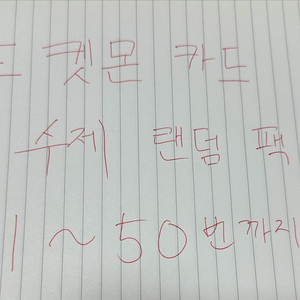 포켓몬 카드
수제 랜덤 팩
1~50번까지